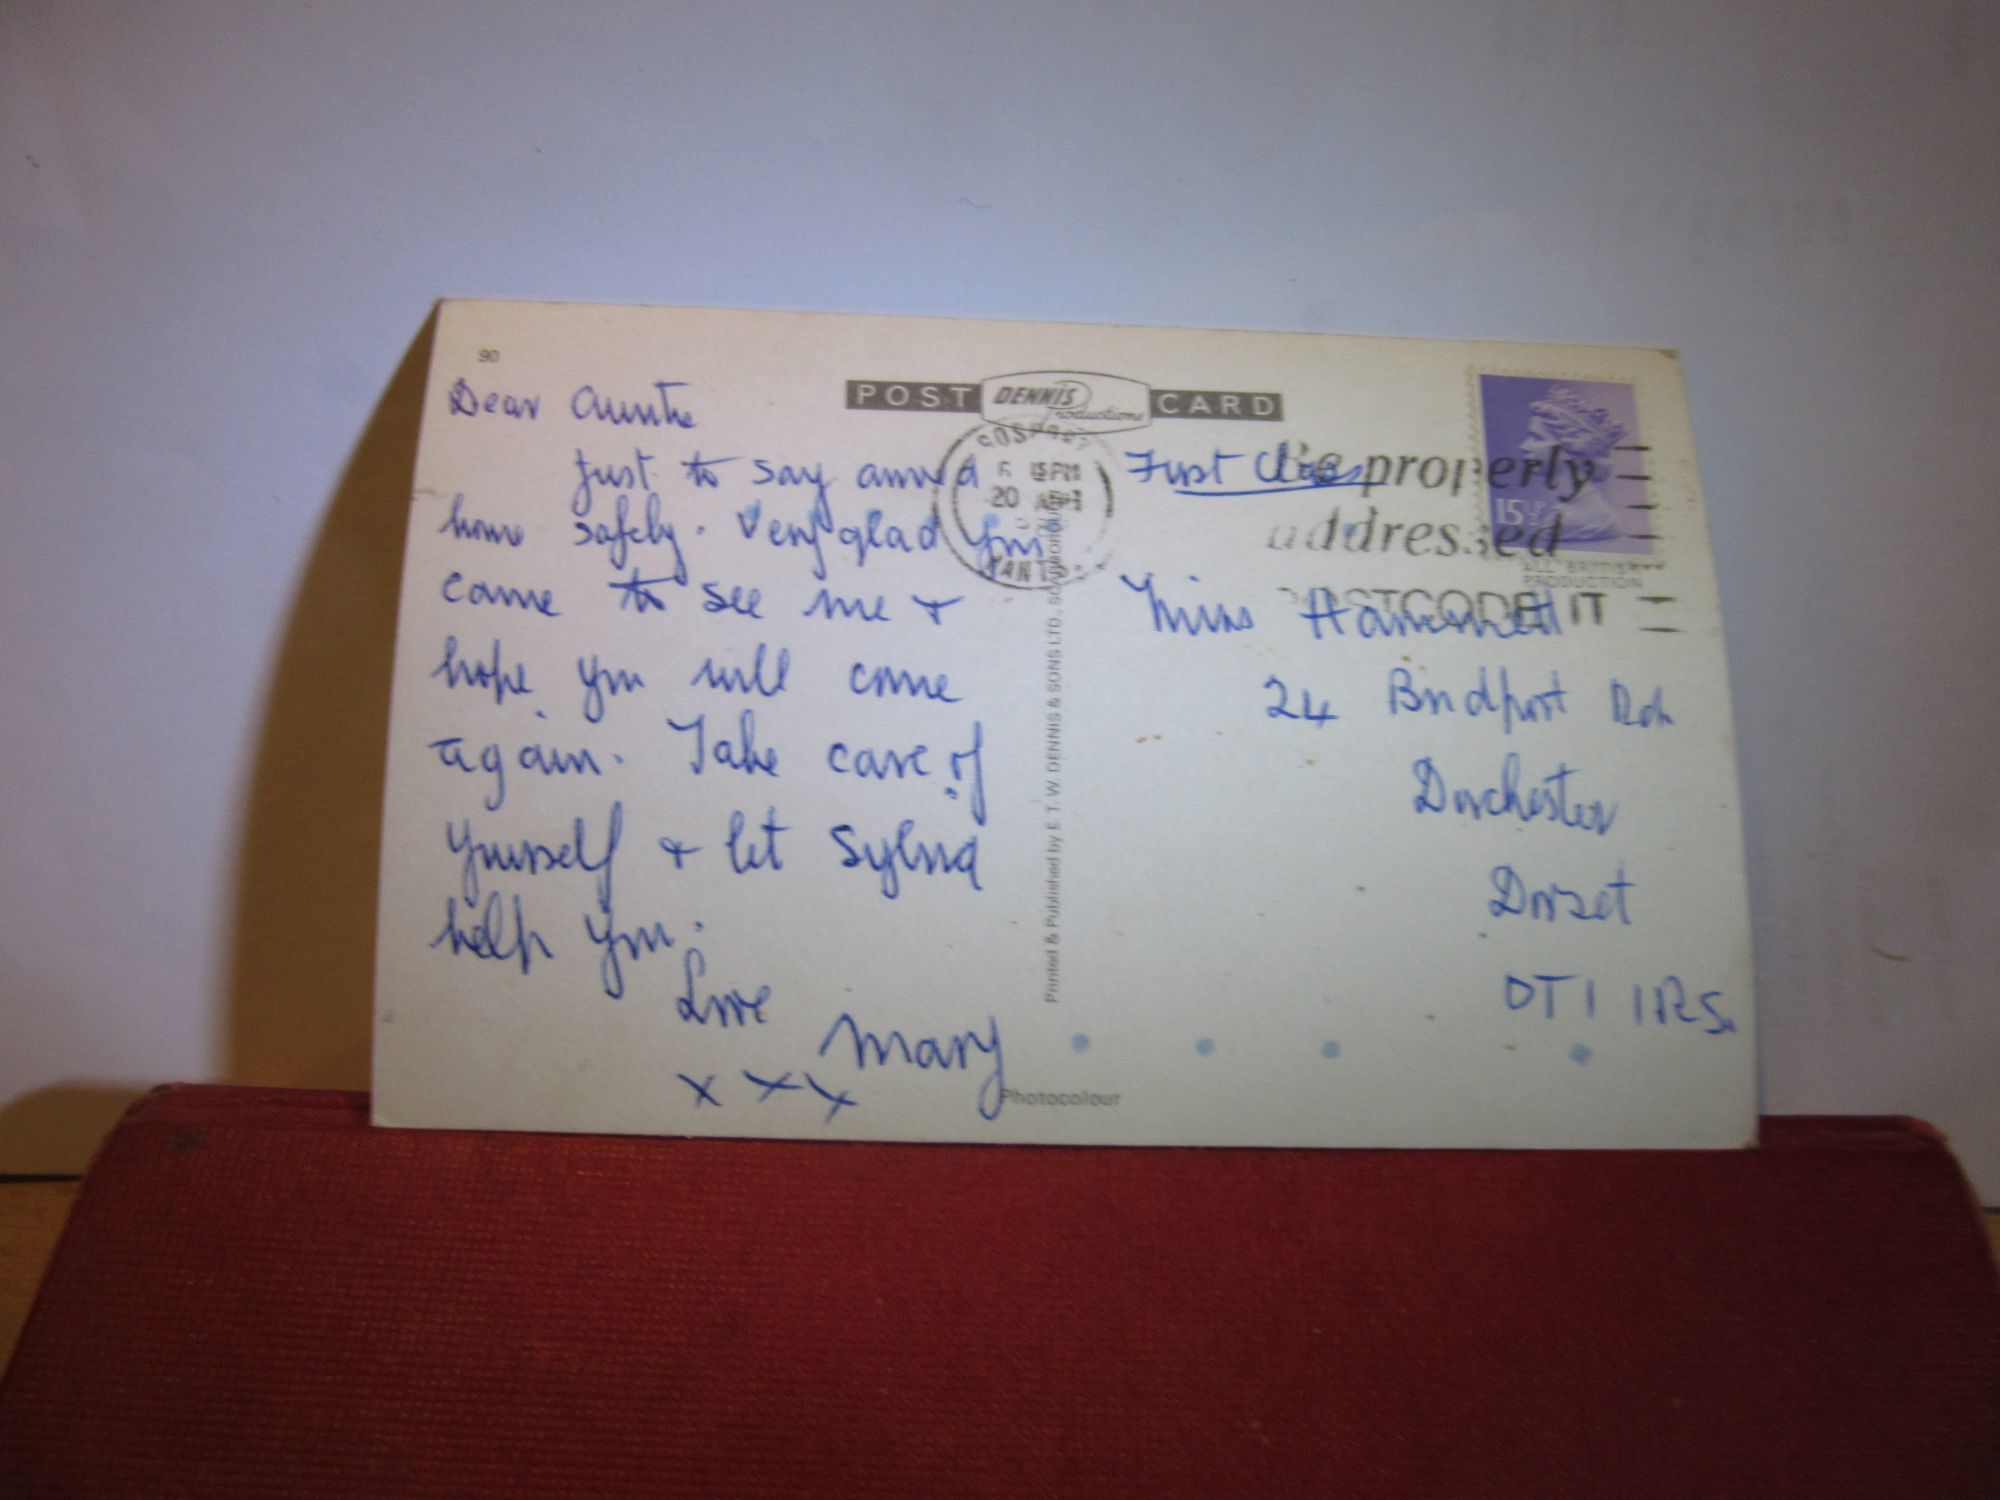 90
POST DENNIS Productions CARD
Dear Auntie
Just to say arrived
home safely. Very glad you
came to see me +
hope you will come
again. Take care of
yourself + let Sylvia
help you.
Love
Mary
x x x
GOSPORT
6 15 PM
20 APR
HANTS
Printed & Published by E. T. W. DENNIS & SONS LTD., SCARBOROUGH
Photocolour
First Class
Be properly
addressed
POSTCODE IT
15½P
ALL BRITISH
PRODUCTION
Miss Hammett
24 Bridport Rd.
Dorchester
Dorset
DT1 1RS.